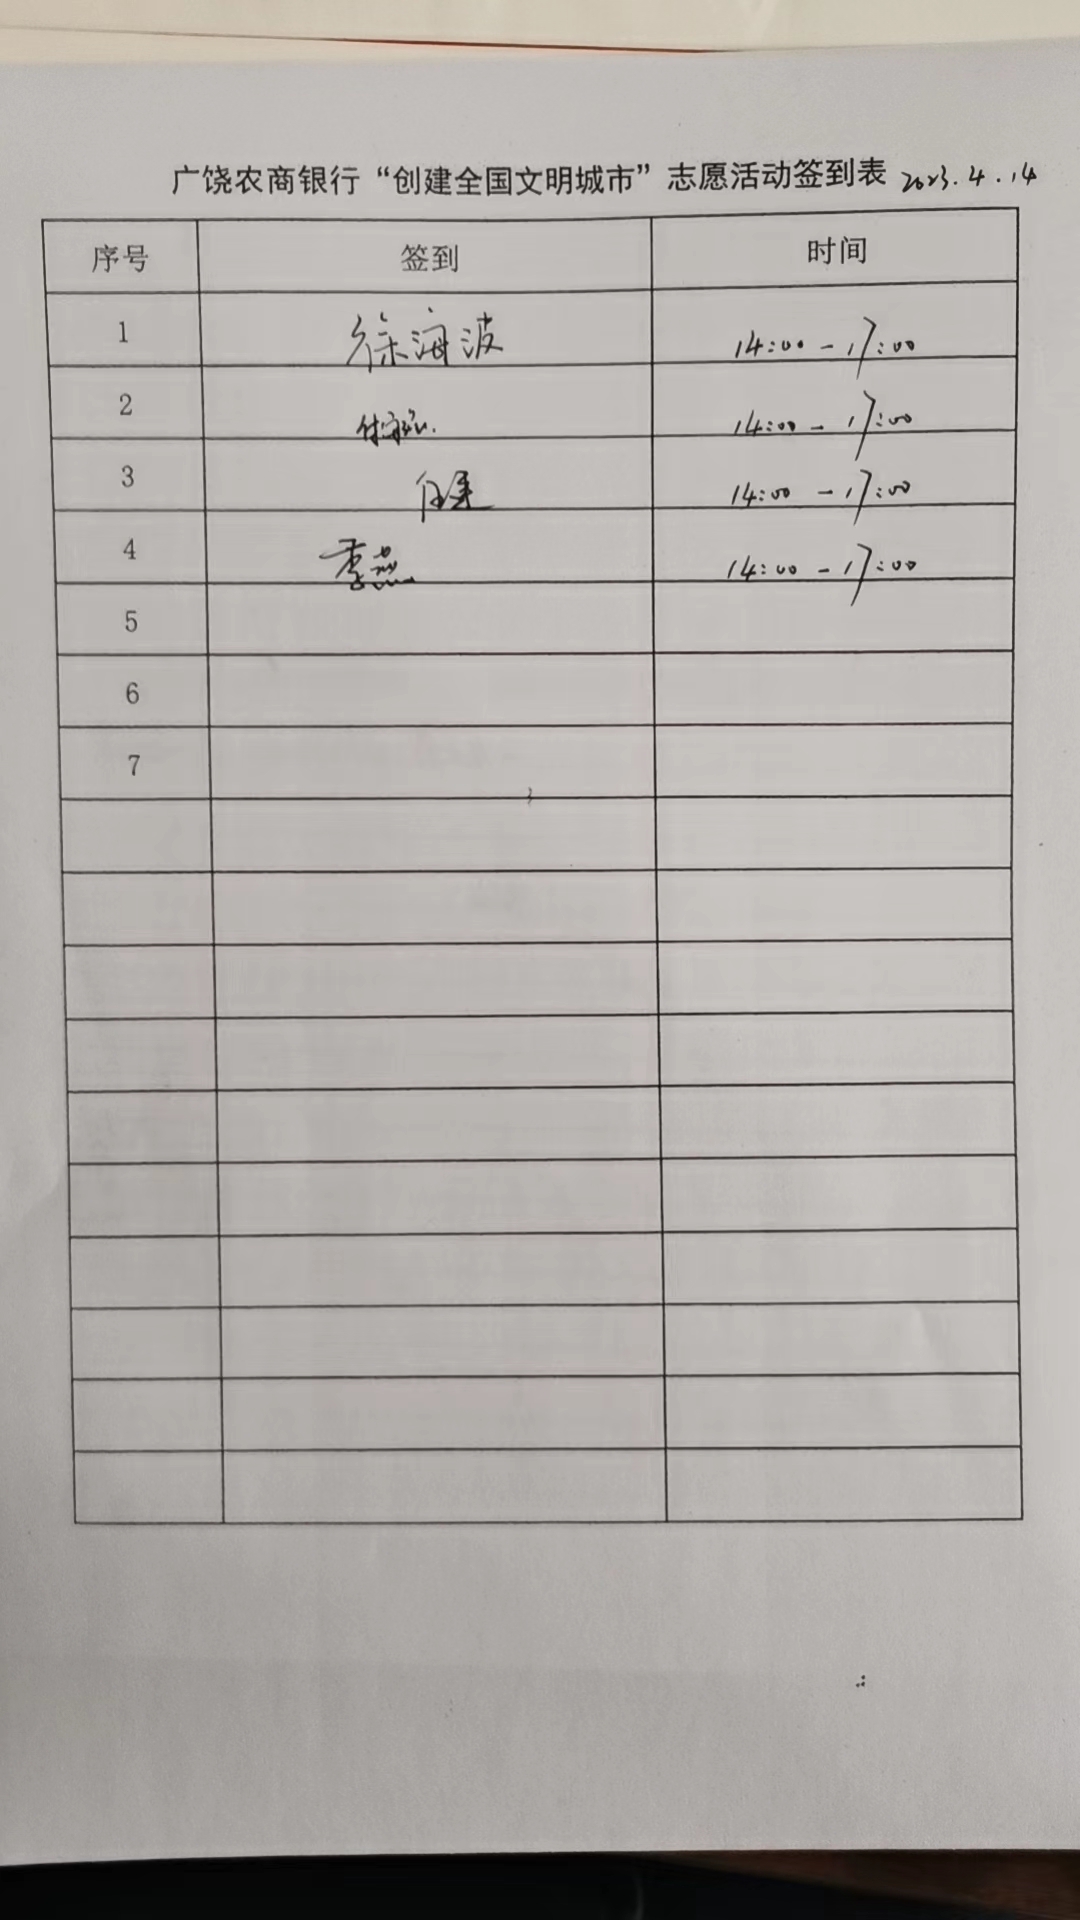 广饶农商银行“创建全国文明城市”志愿活动签到表 2023.4.14
序号 签到 时间
1 徐海波 14:00-17:00
2 14:00-17:00
3 任建 14:00-17:00
4 李燕 14:00-17:00
5
6
7